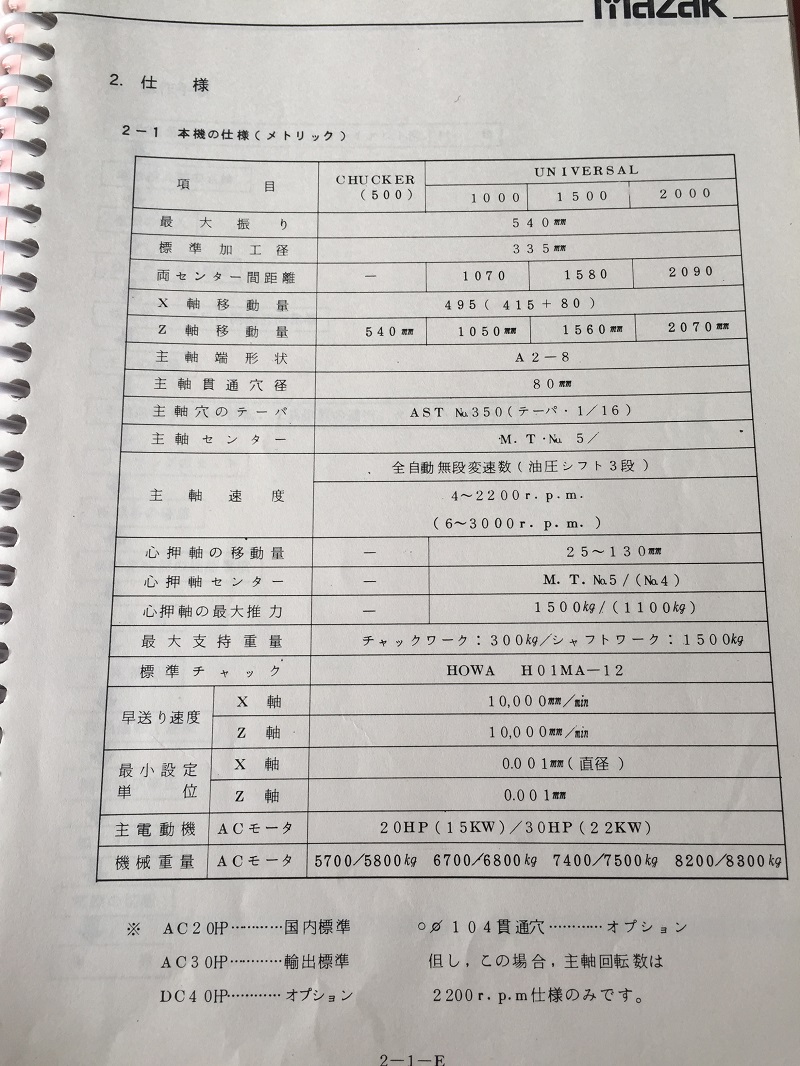 mazak
2. 仕様
2-1 本機の仕様(メトリック)
項目 CHUCKER (500) UNIVERSAL
1000 1500 2000
最大振り 540mm
標準加工径 335mm
両センター間距離 － 1070 1580 2090
X軸移動量 495(415+80)
Z軸移動量 540mm 1050mm 1560mm 2070mm
主軸端形状 A2-8
主軸貫通穴径 80mm
主軸穴のテーパ AST №350(テーパ・1/16)
主軸センター M.T・№ 5/
主軸速度 全自動無段変速数(油圧シフト3段)
4～2200r.p.m.
(6～3000r.p.m.)
心押軸の移動量 － 25～130mm
心押軸センター － M.T.№5/(№4)
心押軸の最大推力 － 1500kg/(1100kg)
最大支持重量 チャックワーク：300kg/シャフトワーク：1500kg
標準チャック HOWA H01MA-12
早送り速度 X軸 10,000mm/min
Z軸 10,000mm/min
最小設定単位 X軸 0.001mm(直径)
Z軸 0.001mm
主電動機 ACモータ 20HP(15KW)/30HP(22KW)
機械重量 ACモータ 5700/5800kg 6700/6800kg 7400/7500kg 8200/8300kg
※ AC20HP…………国内標準
AC30HP…………輸出標準
DC40HP…………オプション
○∅104貫通穴…………オプション
但し，この場合，主軸回転数は
2200r.p.m仕様のみです。
2-1-E